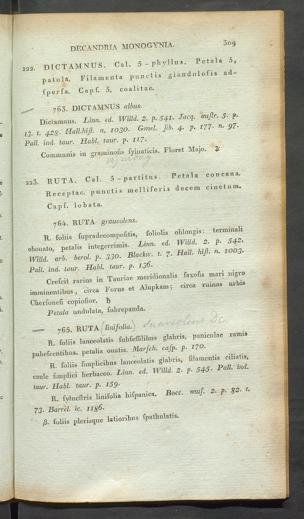 DECANDRIA MONOGYNIA. 309
222. DICTAMNUS. Cal. 5-phyllus. Petala 5,
patula. Filamenta punctis glandulosis ad-
spersa. Caps. 5, coalitae.
763. DICTAMNUS albus.
Dictamnus. Linn. ed. Willd. 2. p. 541. Jacq. austr. 5. p.
t. 428. Hall. hist. n. 1030. Gmel. sib. 4. p. 177. n. 97.
Pall. ind. taur. Habl. taur. p. 117.
Communis in graminosis sylvaticis. Floret Majo. ♃
223. RUTA. Cal. 5-partitus. Petala concava.
Receptac. punctis melliferis decem cinctum.
Caps. lobata.
764. RUTA graveolens.
R. foliis supradecompositis, foliolis oblongis: terminali
obovato, petalis integerrimis. Linn. ed. Willd. 2. p. 542.
Willd. arb. berol. p. 330. Blackw. t. 7. Hall. hist. n. 1003.
Pall. ind. taur. Habl. taur. p. 156.
Crescit rarius in Tauriae meridionalis saxosa mari nigro
imminentibus, circa Foros et Alupkam; circa ruinas urbis
Chersonesi copiosior. ♄
Petala undulata, subrepanda.
765. RUTA linifolia. suaveolens DC
R. foliis lanceolatis subsessilibus glabris, paniculae ramis
pubescentibus, petalis ovatis. Marsch. casp. p. 170.
R. foliis simplicibus lanceolatis glabris, filamentis ciliatis,
caule simplici herbaceo. Linn. ed. Willd. 2. p. 545. Pall. ind.
taur. Habl. taur. p. 159.
R. sylvestris linifolia hispanica. Bocc. mus. 2. p. 82. t.
73. Barrel. ic. 1186.
β. foliis plerisque latioribus spathulatis.